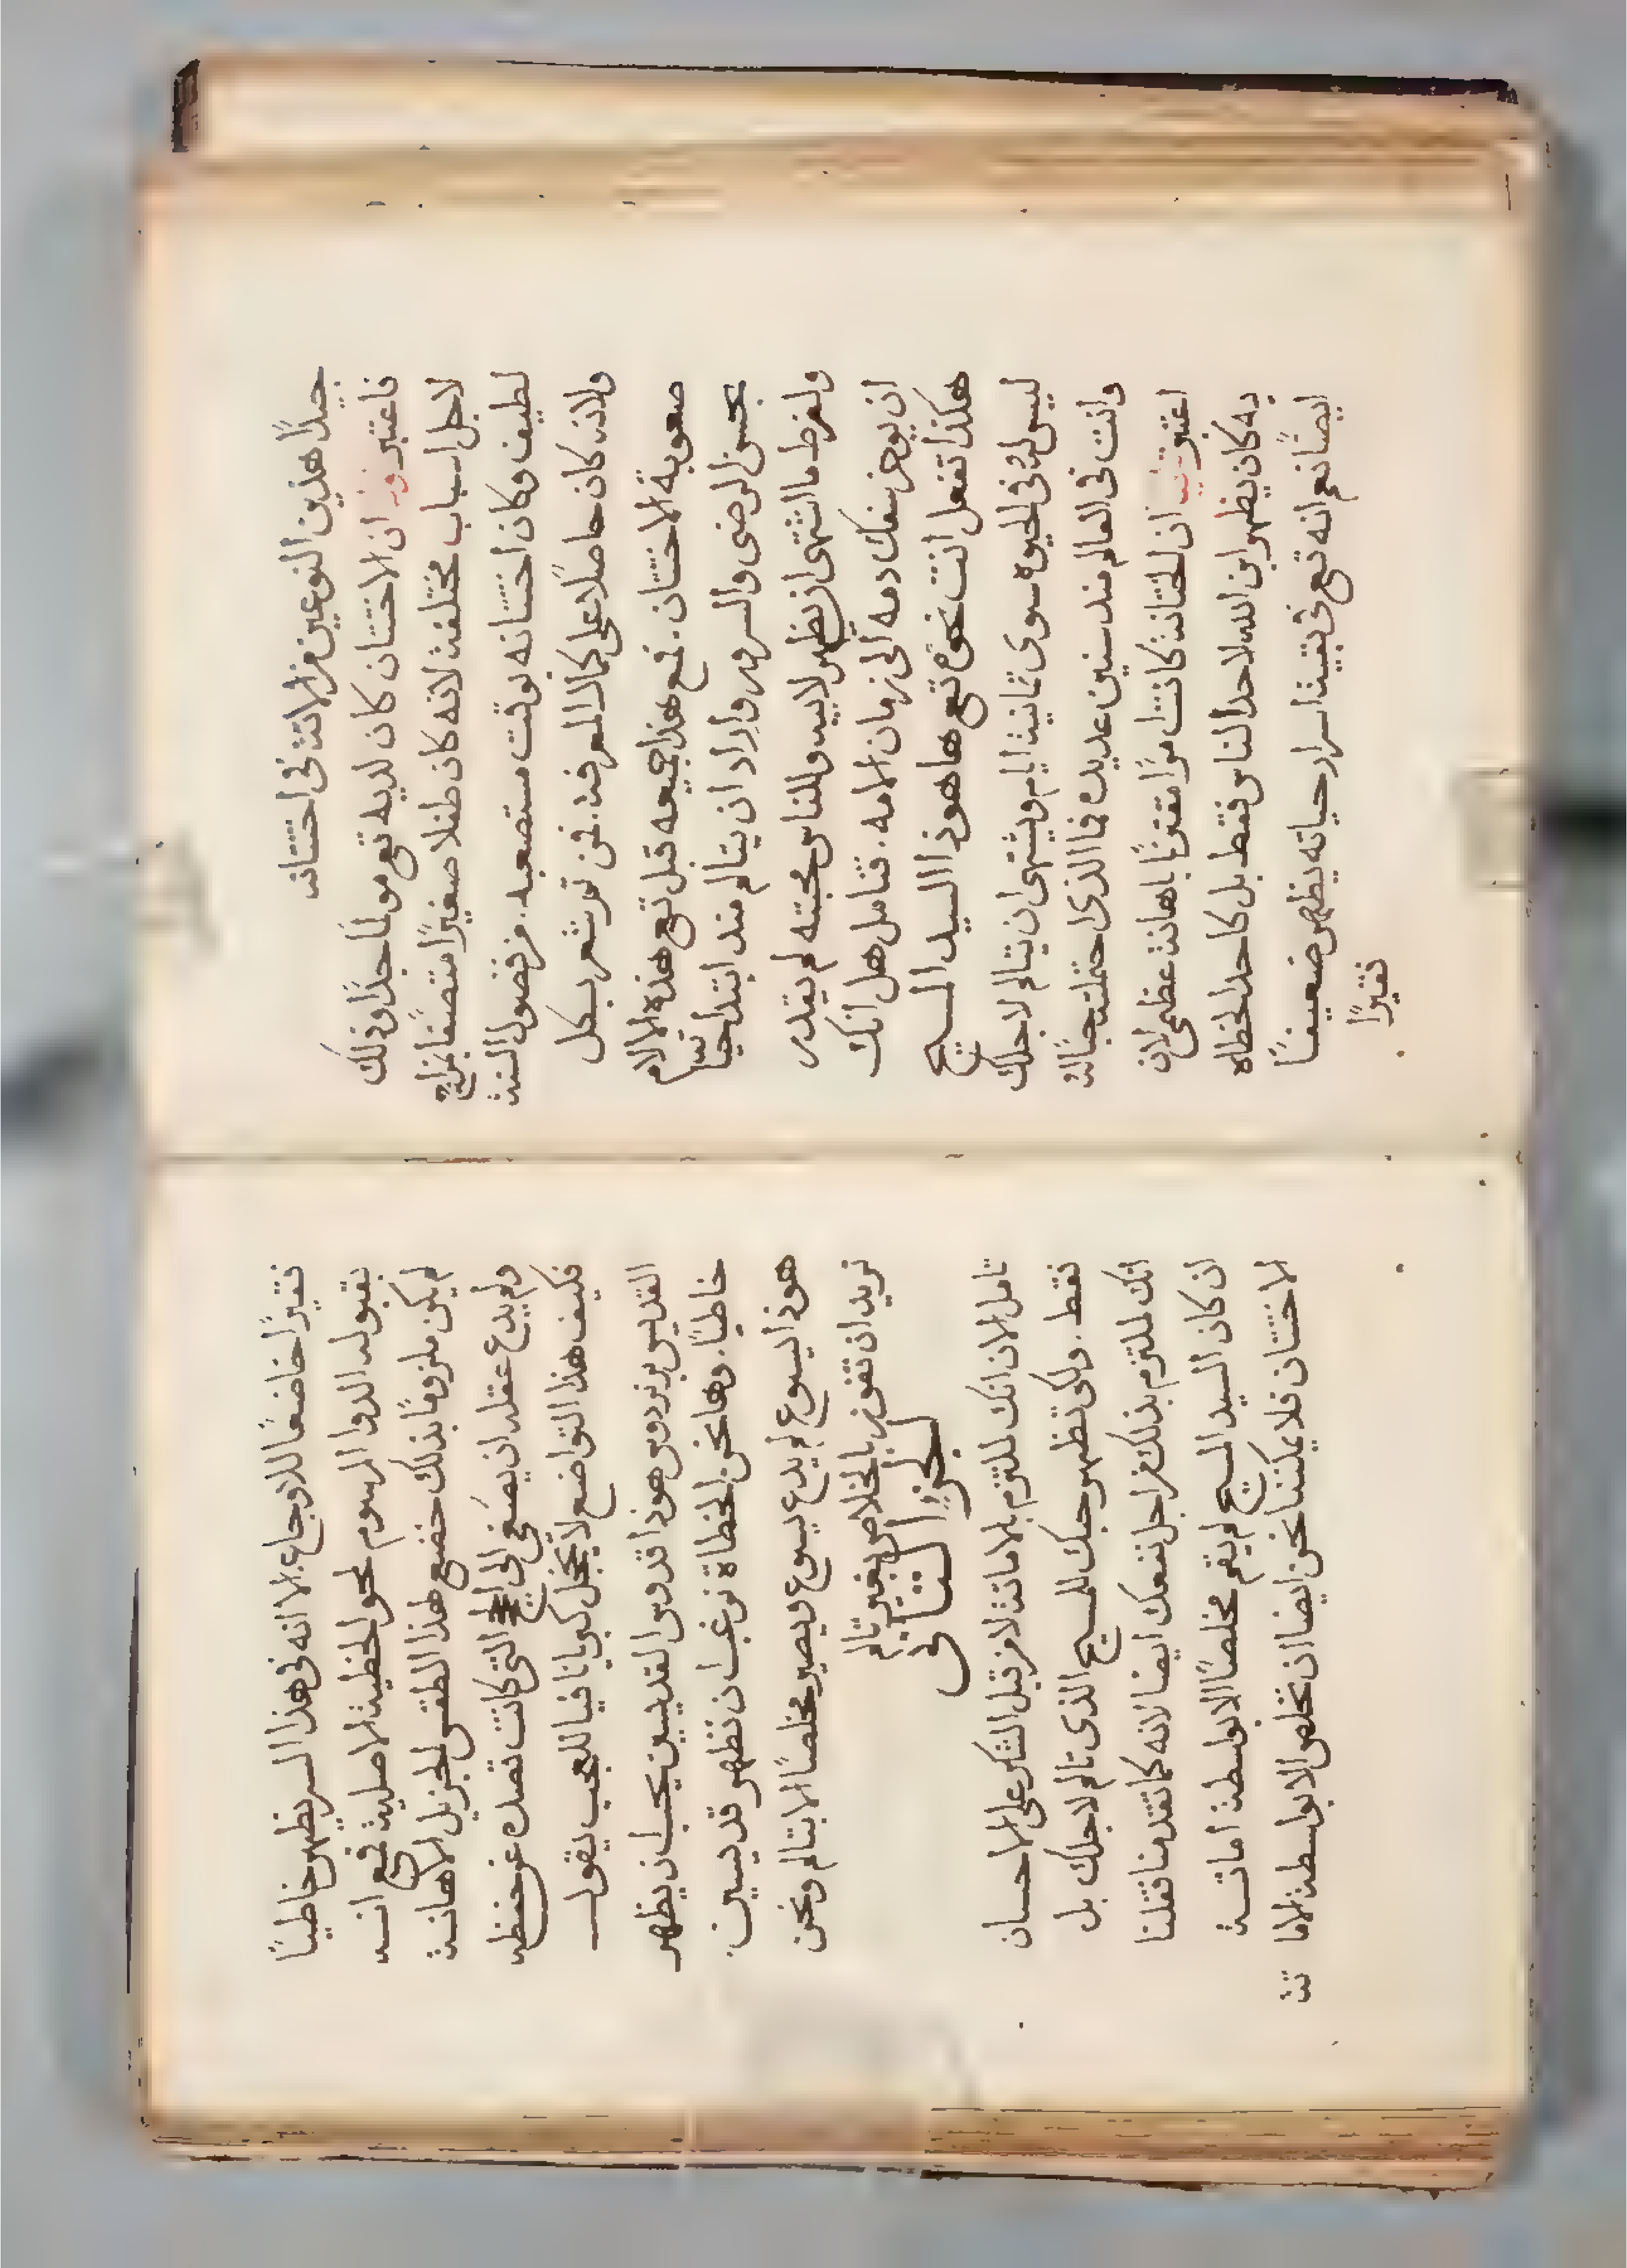 جيدًا هذين النوعين من الاماتة في اختتانه
فاعتبر اولا ان الاختتان كان لديه تع مولمًا جدًا وذلك
لاجل اسباب مختلفة لانه كان طفلا صغيرًا متصفا بمزاج
لطيف وكان اختتانه بوقت مستصعب من فصول السنة
ولانه كان حاصلًا على كمال المعرفة. فمن ثم شعر بكل
صعوبة الاختتان. فمع هذا جميعه قبل تع هذه الالام
بحسن الرضى والسرور واراد ان يتالم مند ابتدا حياته
ولفرط ما اشتهى ان يظهر لابيه وللناس محبته لم يقدر
ان يوخر سفك دمه الى زمان الامه. فتامل هل انك
هكذا تفعل انت نحوه تع ها هوذا السيد المسيح
ليس له في الحيوه سوى ثمانية ايام ويشتهي ان يتالم لاجلك
وانت في العالم مند سنين عديده فما الذي احتملته حبًا له
اعتبر ثانيا ان اختتانه كانت مومًا مقترنًا باهانة عظمى لان
به كان يظهر ابن الله لا احد الناس فقط بل كاحد الخطاه
ايضًا نعم انه تع في بقية اسرار حياته يظهر ضعيفًا
فقيرًا
فقيرًا خاضعًا للاوجاع. الا انه في هذا السر يظهر خاطيًا
بقبوله الدوا المرسوم لمحو الخطية الاصلية فمع انه
لم يكن ملزومًا بذلك خضع لهذا الطقس الجزيل الاهانة
ولم يدع عقله ان يصغي الى الحجج التي كانت تصده عن حفظه
فكيف هذا التواضع لا يخجل كبريانا فيا للعجب يقول
القديس برنردوس هوذا قدوس القديسين يحب ان يظهر
خاطيًا. وها نحن الخطاة نرغب ان نظهر قديسين.
هوذا يسوع لم يدع يسوع ويصير مخلصًا الا بتالم ونحن
نريد ان نفوز بالخلاص بغير تالم
الجزء الثاني
تامل الان انك لملتزم بالاماتة لا من قبل الشكر على الاحسان
فقط. ولكي تظهر حبك للمسيح الذي تالم لاجلك بل
انك لملتزم بذلك من اجل نفعك ايضا لانه كما تقدمنا فقلنا
ان كان السيد المسيح لم يقم مخلصًا الا بواسطة اماتة
الاختتان فلا يمكننا نحن ايضا ان نخلص الا بواسطة الاما
تة